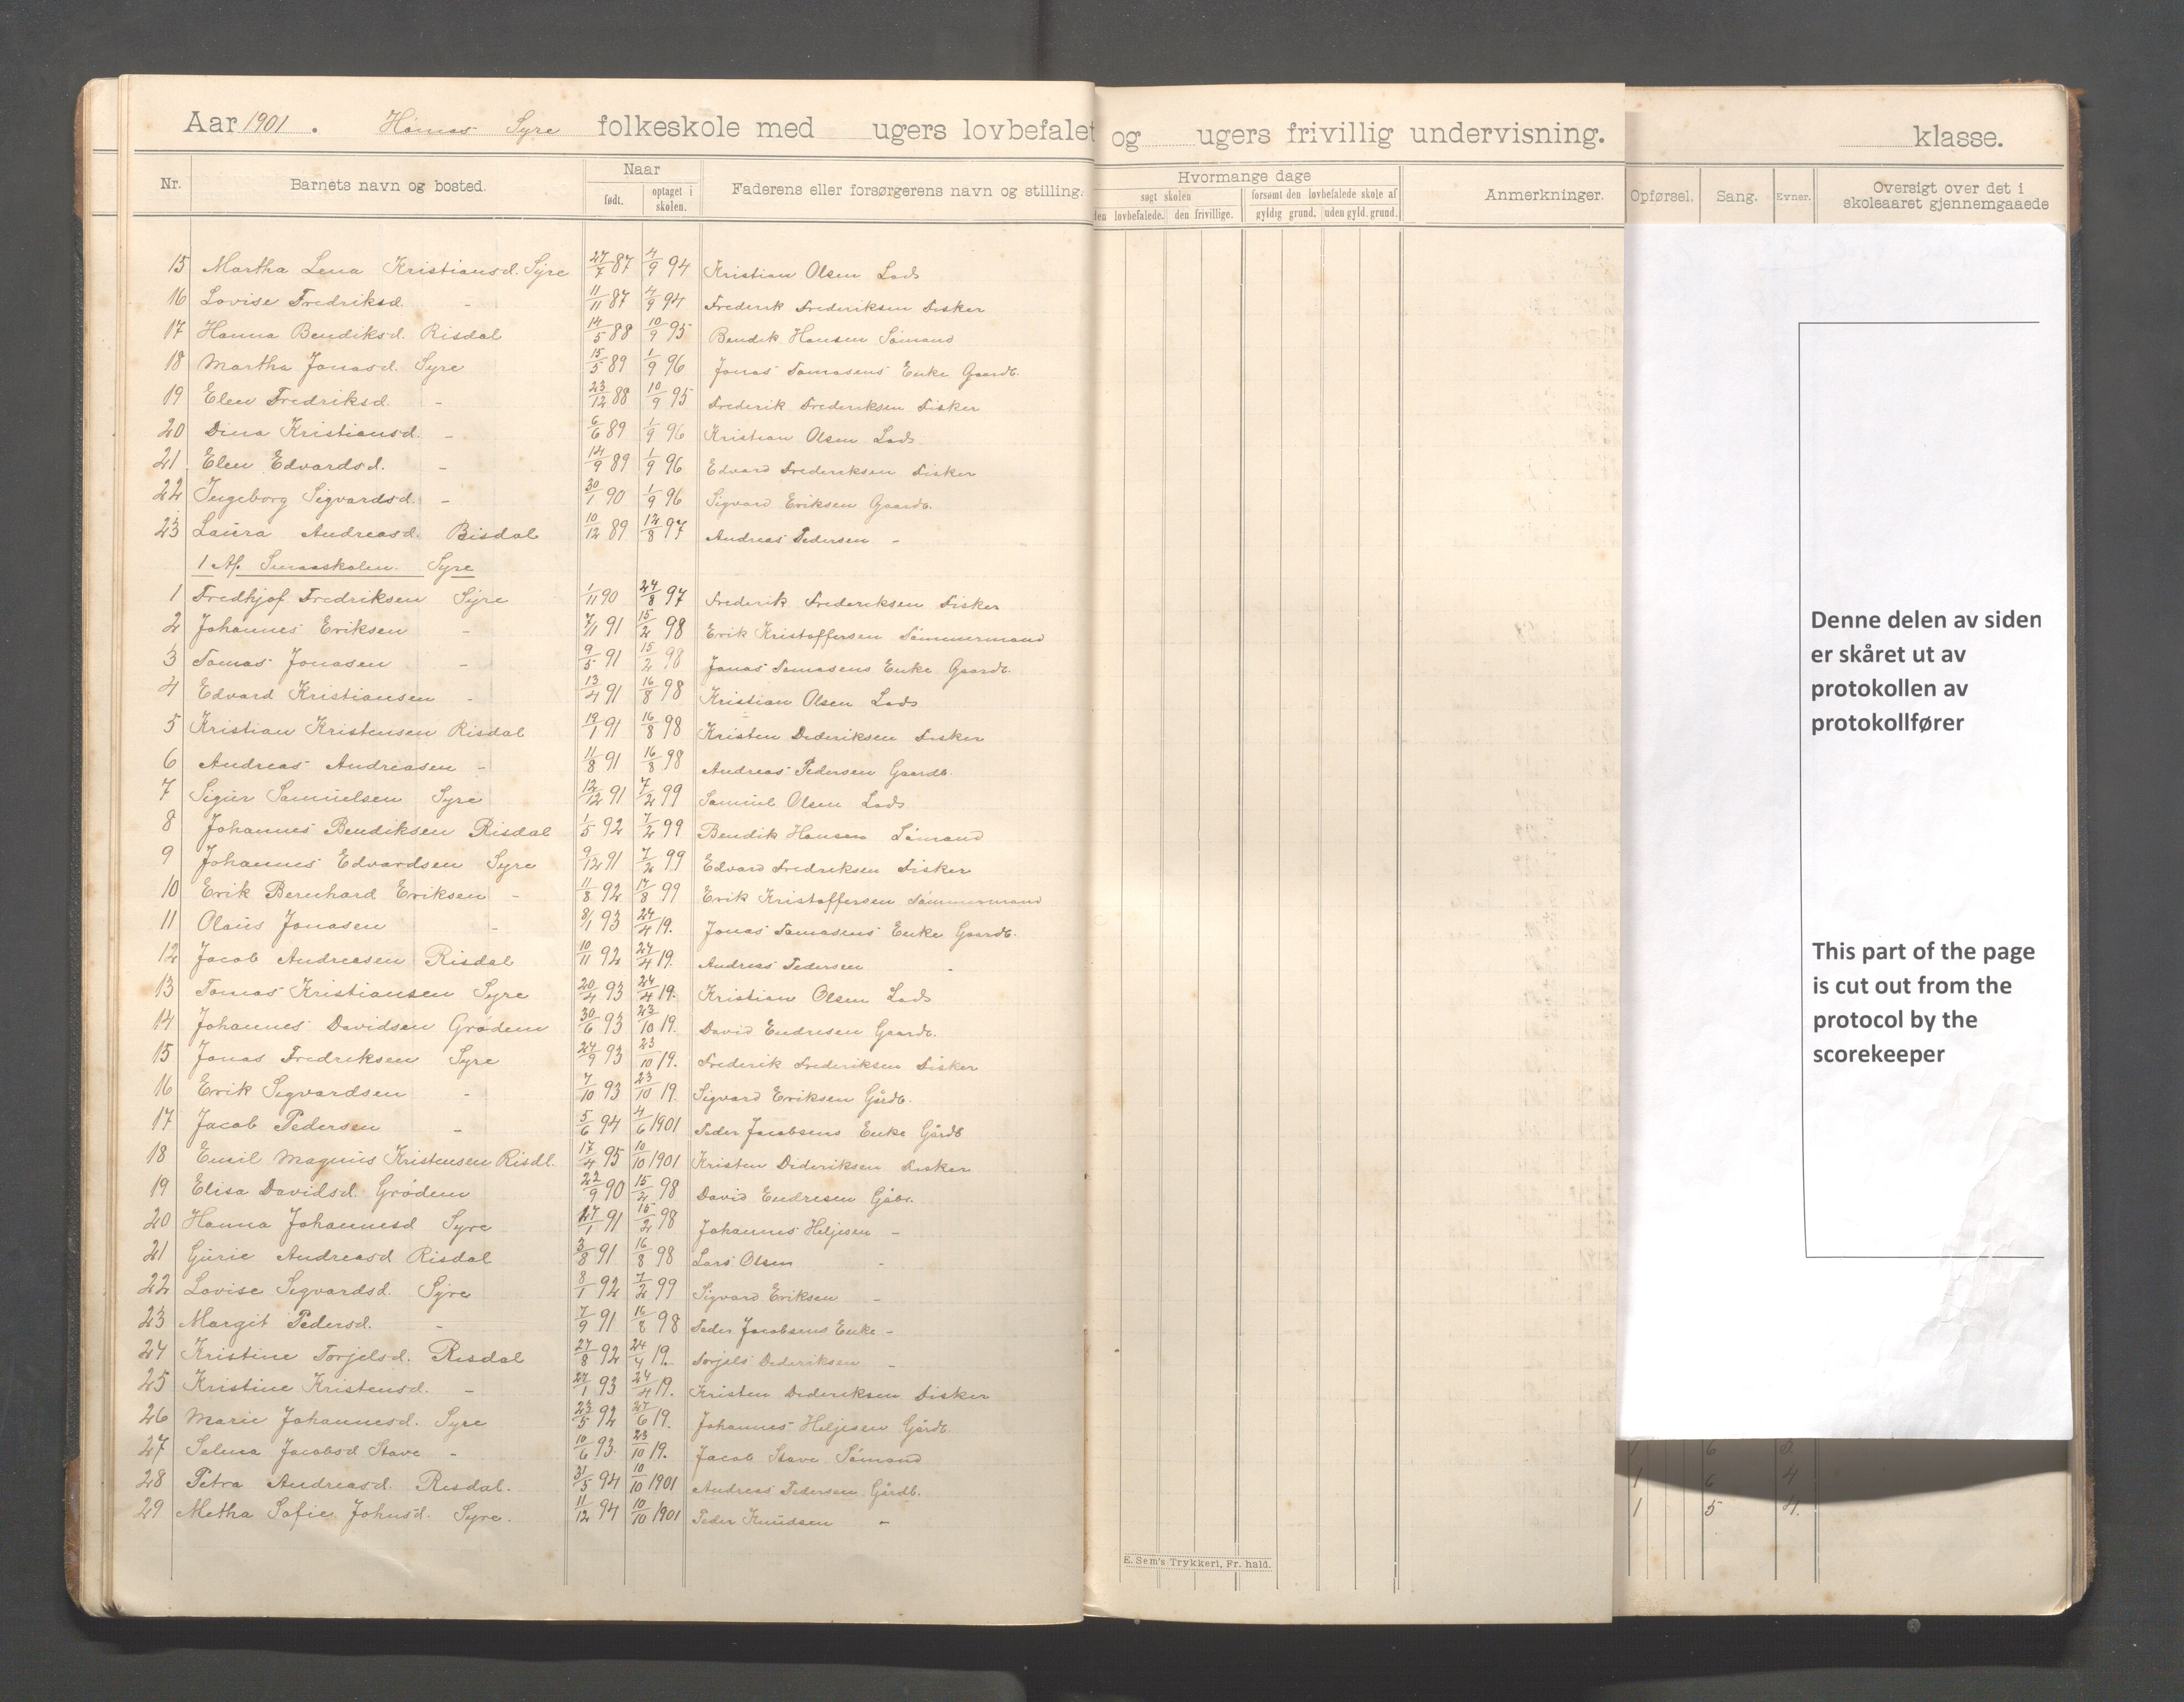 Aar 1901. Syre folkeskole med ugers lovbefalet og ugers frivillig undervisning. klasse.
Nr. Barnets navn og bosted. Naar født. optaget i skolen. Faderens eller forsørgerens navn og stilling. Hvormange dage søgt skolen den lovbefalede. den frivillige. forsømt den lovbefalede skole af gyldig grund. uden gyld. grund. Anmerkninger. Opførsel. Sang. Evner. Oversigt over det i skoleaaret gjennemgaaede
15 Martha Lena Kristiansd. Syre 27/7 87 4/9 94 Kristian Olsen Lods
16 Lovise Fredriksd. - 11/11 87 4/9 94 Frederik Frederiksen Fisker
17 Hanna Bendiksd. Risdal 14/5 88 10/9 95 Bendik Hansen Sömand
18 Martha Jonasd. Syre 15/5 89 1/9 96 Jonas Tomasens Enke Gaardb.
19 Elen Fredriksd. - 23/12 88 10/9 95 Frederik Frederiksen Fisker
20 Dina Kristiansd. - 6/6 89 1/9 96 Kristian Olsen Lods
21 Elen Edvardsd. - 14/9 89 1/9 96 Edvard Frederiksen Fisker
22 Ingeborg Sigvardsd. - 30/1 90 1/9 96 Sigvard Eriksen Gaardb.
23 Laura Andreasd. Risdal 10/12 89 12/8 97 Andreas Pedersen -
1 Af. Smaaskolen. Syre
1 Fredhjof Fredriksen Syre 1/11 90 24/8 97 Frederik Frederiksen Fisker
2 Johannes Eriksen - 7/1 91 15/2 98 Erik Kristoffersen Tömmermand
3 Tomas Jonasen - 9/5 91 15/2 98 Jonas Tomasens Enke Gaardb.
4 Edvard Kristiansen - 13/4 91 16/8 98 Kristian Olsen Lods
5 Kristian Kristensen Risdal 19/1 91 16/8 98 Kristen Dideriksen Fisker
6 Andreas Andreasen - 11/8 91 16/8 98 Andreas Pedersen Gaardb.
7 Sigur Samuelsen Syre 12/12 91 7/2 99 Samuel Olsen Lods
8 Johannes Bendiksen Risdal 1/5 92 7/2 99 Bendik Hansen Sömand
9 Johannes Edvardsen Syre 9/12 91 7/2 99 Edvard Fredriksen Fisker
10 Erik Bernhard Eriksen - 11/8 92 17/8 99 Erik Kristoffersen Tömmermand
11 Olaus Jonasen - 8/1 93 24/4 19. Jonas Tomasens Enke Gaardb.
12 Jacob Andreasen Risdal 10/11 92 24/4 19. Andreas Pedersen -
13 Tomas Kristiansen Syre 20/4 93 24/4 19. Kristian Olsen Lods
14 Johannes Davidsen Grödem 30/6 93 23/10 19. David Endresen Gaardb.
15 Jonas Fredriksen Syre 24/9 93 23/10 19. Frederik Frederiksen Fisker
16 Erik Sigvardsen - 7/10 93 23/10 19. Sigvard Eriksen Gårdb.
17 Jacob Pedersen - 5/6 94 4/6 1901 Peder Jacobsens Enke Gårdb
18 Emil Magnus Kristensen Risdl. 17/4 95 10/10 1901 Kristen Dideriksen Fisker
19 Elisa Davidsd. Grödem 22/9 90 15/2 98 David Endresen Gåbr.
20 Hanna Johannesd Syre 27/1 91 15/2 98 Johannes Heljesen -
21 Gurie Andreasd Risdal 3/8 91 16/8 98 Lars Olsen -
22 Lovise Sigvardsd. Syre 8/1 92 7/2 99 Sigvard Eriksen -
23 Margit Pedersd. - 7/9 91 16/8 98 Peder Jacobsens Enke -
24 Kristine Torjelsd. Risdal 27/8 92 24/4 19. Torjels Dideriksen -
25 Kristine Kristensd. - 27/1 93 24/4 19. Kristen Dideriksen Fisker
26 Marie Johannesd. Syre 23/5 92 27/6 19. Johannes Heljesen Gårdb.
27 Selma Jacobsd Stave - 10/6 93. 23/10 19. Jacob Stave Sömand
28 Petra Andreasd. Risdal. 31/5 94 10/10 1901 Andreas Pedersen Gårdb.
29 Metha Sofie Johnsd. Syre. 11/12 94 10/10 1901 Peder Knudsen -
E. Sem's Trykkeri, Fr. hald.
Denne delen av siden
er skåret ut av
protokollen av
protokollfører
This part of the page
is cut out from the
protocol by the
scorekeeper
1 6 4
1 5 4.